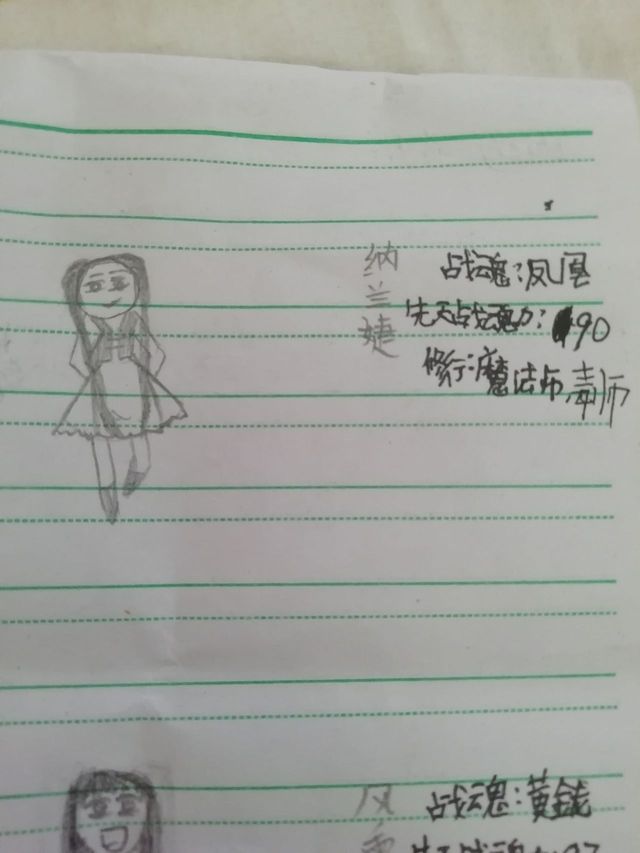 纳兰婕
战魂:凤凰
先天战魂力:90
修行:魔法师 毒师
风
战魂:黄金